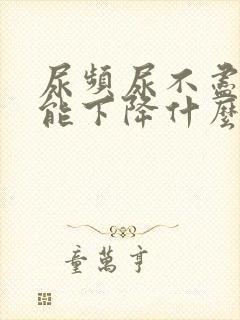 尿頻尿不盡
能下降什麼
童萬亨